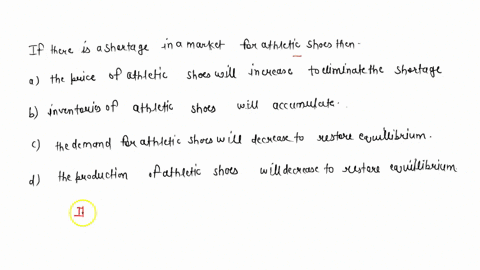 If there is a shortage in a market for athletic shoes then.
a) the price of athletic shoes will increase to eliminate the shortage
b) inventories of athletic shoes will accumulate.
c) the demand for athletic shoes will decrease to restore equilibrium.
d) the production of athletic shoes will decrease to restore equillibrium
If